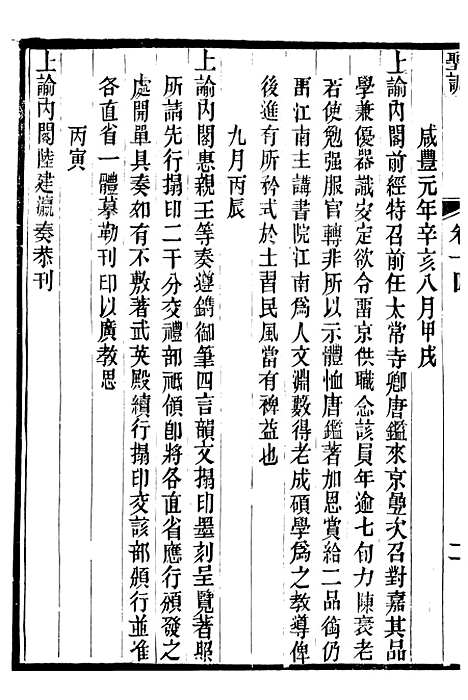 聖訓
卷一四
二
咸豐元年辛亥八月甲戌
上諭內閣前經特召前任太常寺卿唐鑑來京疊次召對嘉其品
學兼優器識安定欲令畱京供職念該員年逾七旬力陳衰老
若使勉强服官轉非所以示體恤唐鑑著加恩賞給二品銜仍
畱江南主講書院江南爲人文淵藪得老成碩學爲之敎導俾
後進有所矜式於士習民風當有裨益也
九月丙辰
上諭內閣惠親王等奏遵鐫御筆四言韻文搨印墨刻呈覽著照
所請先行搨印二千分交禮部祗領卽將各直省應行頒發之
處開單具奏如有不敷著武英殿續行搨印交該部頒行並准
各直省一體摹勒刊印以廣敎思
丙寅
上諭內閣陸建瀛奏恭刊